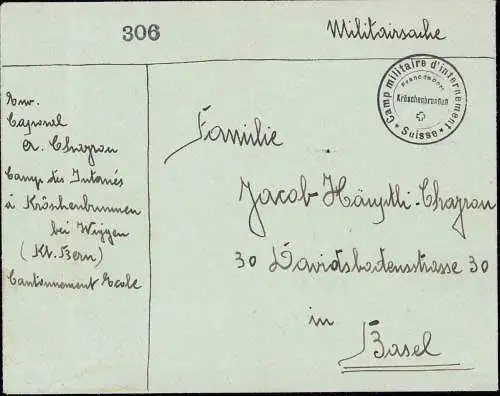 306
Militairsache
Camp militaire d'internement
Franc de Port
Kröschenbrunnen
* Suisse *
Env.
Caporal
A. Chagran
Camp des Internés
à Kröschenbrunnen
bei Wiggen
(Kt. Bern)
Cantonnement Ecole
Familie
Jacob-Hänftli-Chagran
30 Davidsbodenstrasse 30
in
Basel